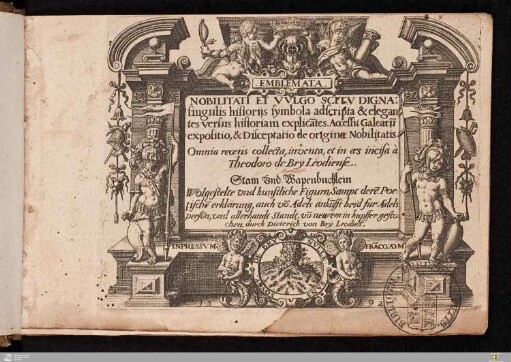 EMBLEMATA
NOBILITATI ET VVLGO SCITV DIGNA:
singulis historijs symbola adscripta & elegan
tes versus historiam explicãtes. Accessit Galearũ
expositio, & Disceptatio de origine Nobilitatis.
Omnia recens collecta, inventa, et in æs incisa à
Theodoro de Bry Leodiense.
Stam Vnd Wapenbuchlein
Wolgestelte vnd kunstliche Figurn, Sampt derẽ Poe
tische erklarung, auch võ Adels ankũfft beid fur Adels
person, vnd allerhandt Stands, võ newem in kupffer gesto
chen, durch Dieterich von Bry Leodiens.
INPRESSVM
FRACO AD M
15 92